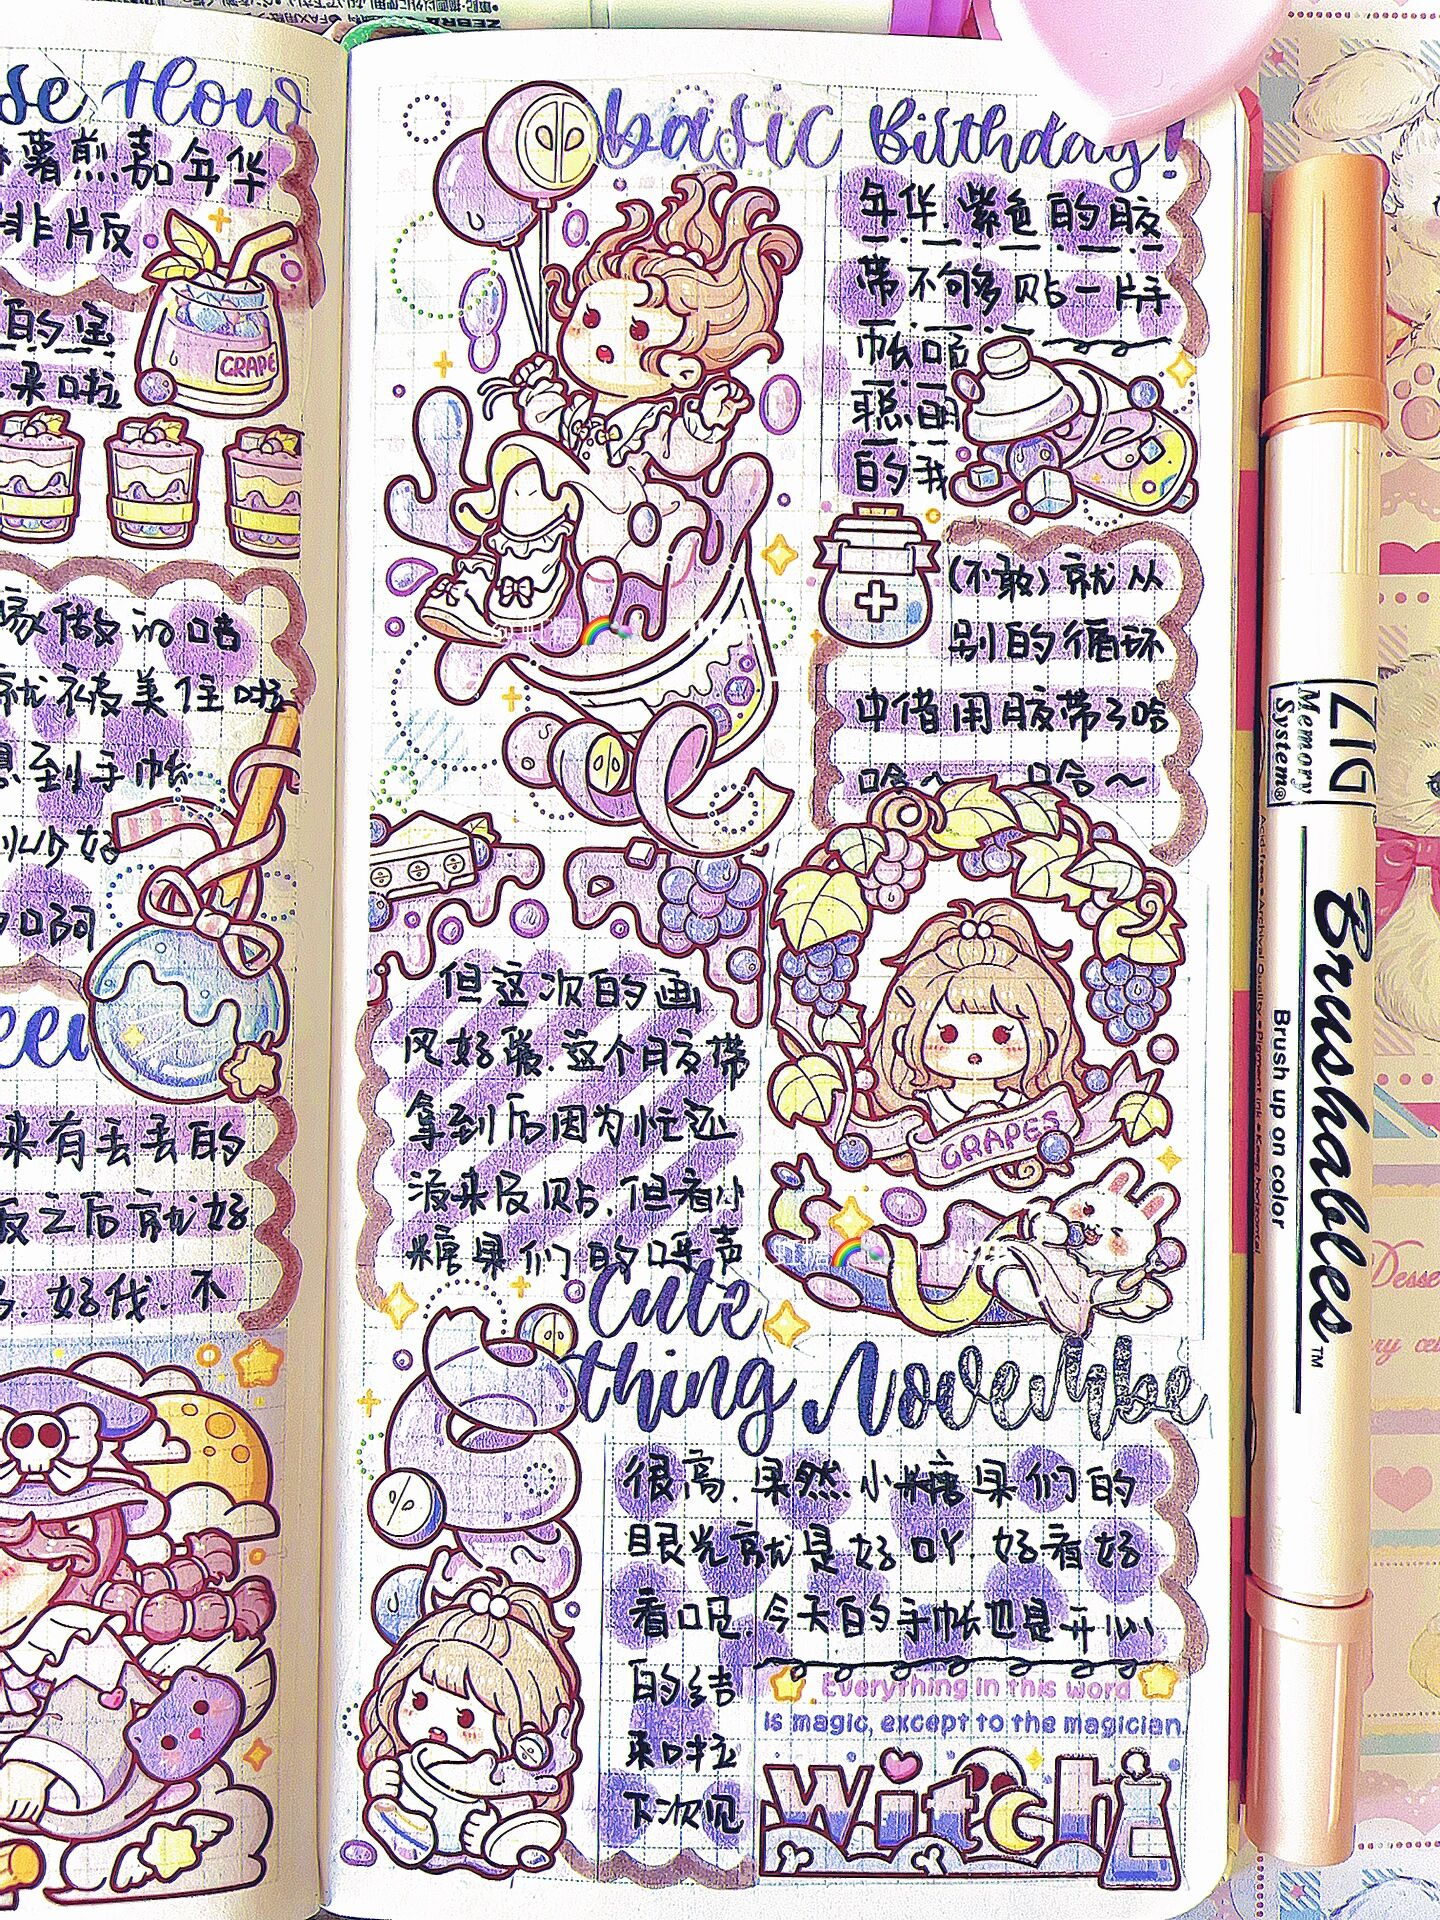 薯煎嘉年华
排版
GRAPE
来啦
做的
就被美住啦
到手帐
好
啊
来有丢丢的
之后就好
好伐.不
basic Birthday!
年华紫色的胶
带不够多贴一片手
帐哈
聪明
的我
(不敢)就从
别的循环
中借用胶带了哈
哈~ 哈~
GRAPES
但这次的画
风好爱.这个胶带
拿到后因为忙还
没来及贴.但看小
糖果们的呼声
Cute
thing Novembe
很高.果然小糖果们的
眼光就是好吖.好看好
看呃.今天的手帐也是开心
的结
束啦
下次见
Everything in this word
is magic, except to the magician.
Witch
ZIG
Memory
System®
Brushables™
Brush up on color
Desse
ZEBRA